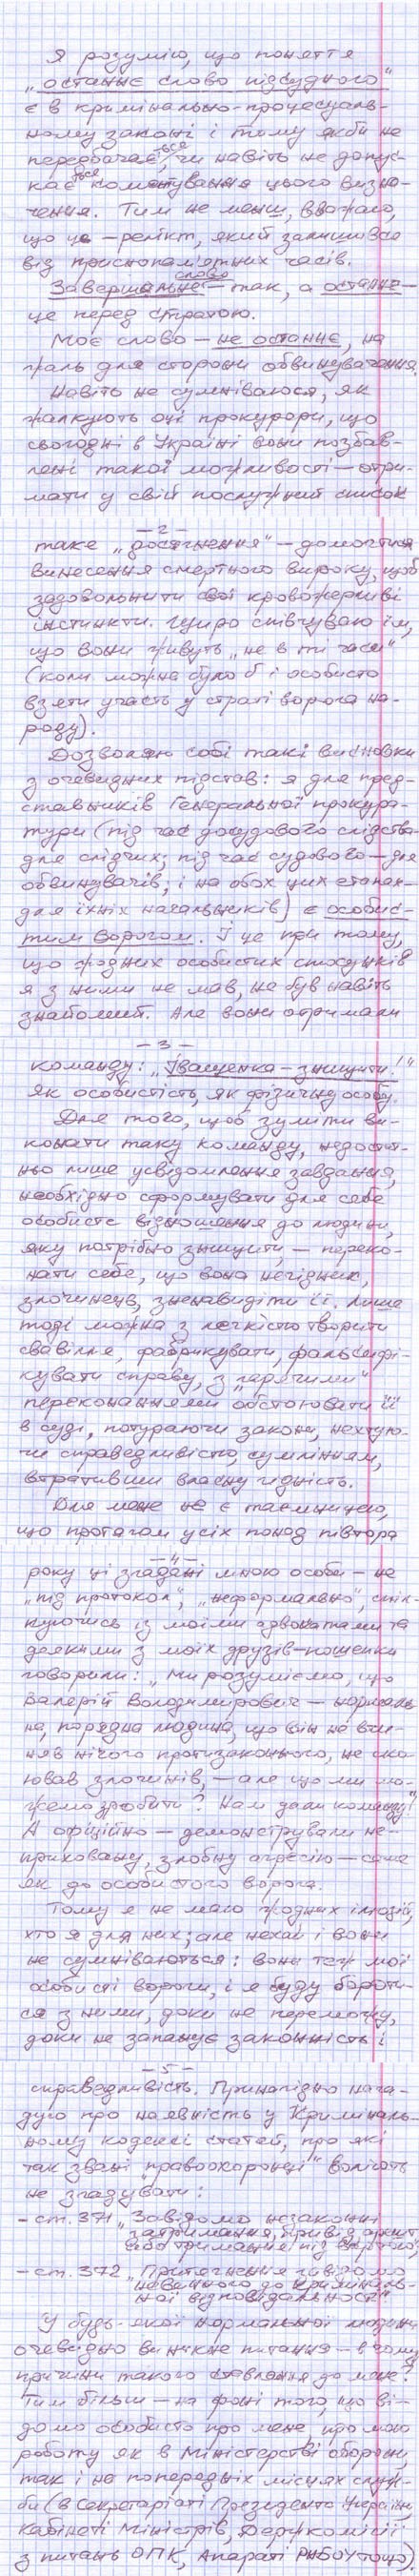 Я розумію, що поняття
„останнє слово підсудного"
є в кримінально-процесуаль-
ному законі і тому якби не
передбачає,ться чи навіть не допус-
кається коментування цього визна-
чення. Тим не менш, вважаю,
що це – релікт, який залишився
від приснопам'ятних часів.
Завершальне слово – так, а останнє –
це перед стратою.
Моє слово – не останнє, на
жаль для сторони обвинувачення.
Навіть не сумніваюся, як
жалкують оці прокурори, що
сьогодні в Україні вони позбав-
лені такої можливості – отри-
мати у свій послужний список
– 2 –
таке „досягнення" – домогтися
винесення смертного вироку, щоб
задовольнити свої кровожерливі
інстинкти. Щиро співчуваю їм,
що вони живуть „не в ті часи"
(коли можна було б і особисто
взяти участь у страті ворога на-
роду).
Дозволяю собі такі висновки
з очевидних підстав: я для пред-
ставників Генеральної прокура-
тури (під час досудового слідства –
для слідчих; під час судового – для
обвинувачів; і на обох цих етапах –
для їхніх начальників) є особис-
тим ворогом. І це при тому,
що жодних особистих стосунків
я з ними не мав, не був навіть
знайомий. Але вони отримали
– 3 –
команду: „Іващенка – знищити!"
як особистість, як фізичну особу.
Для того, щоб зуміти ви-
конати таку команду, недостат-
ньо лише усвідомлення завдання,
необхідно сформувати для себе
особисте відношення до людини,
яку потрібно знищити, – переко-
нати себе, що вона негідник,
злочинець, зненавидіти її. Лише
тоді можна з легкістю творити
свавілля, фабрикувати, фальсифі-
кувати справу, з „гарячими"
переконаннями обстоювати її
в суді, потураючи закони, нехтую-
чи справедливістю, сумлінням,
втративши власну гідність.
Для мене не є таємницею,
що протягом усіх понад півтора
– 4 –
року ці згадані мною особи – не
„під протокол", „неформально", спіл-
куючись із моїми адвокатами та
деякими з моїх друзів-пошепки
говорили: „Ми розуміємо, що
Валерій Володимирович – нормаль-
на, порядна людина, що він не вчи-
няв нічого протизаконного, не ско-
ював злочинів, – але що ми мо-
жемо зробити? Нам дали команду!"
А офіційно – демонстрували не-
приховану, злобну агресію – саме
як до особистого ворога.
Тому я не маю жодних ілюзій,
хто я для них; але нехай і вони
не сумніваються: вони теж мої
особисті вороги, і я буду бороти-
ся з ними, доки не переможу,
доки не запанує законність і
– 5 –
справедливість. Принагідно нага-
дую про наявність у Криміналь-
ному кодексі статей, про які
так звані „правоохоронці" воліють
не згадувати:
– ст. 371 „Завідомо незаконні
затримання, привід, арешт
або тримання під вартою";
– ст. 372 „Притягнення завідомо
невинного до криміналь-
ної відповідальності"
У будь-якої нормальної людини
очевидно виникне питання – в чому
причини такого ставлення до мене?
Тим більш – на фоні того, що ві-
домо особисто про мене, про мою
роботу як в Міністерстві оборони,
так і на попередніх місцях служ-
би (в Секретаріаті Президента України,
Кабінеті Міністрів, Держкомісії
з питань ОПК, Апараті РНБОУ тощо),